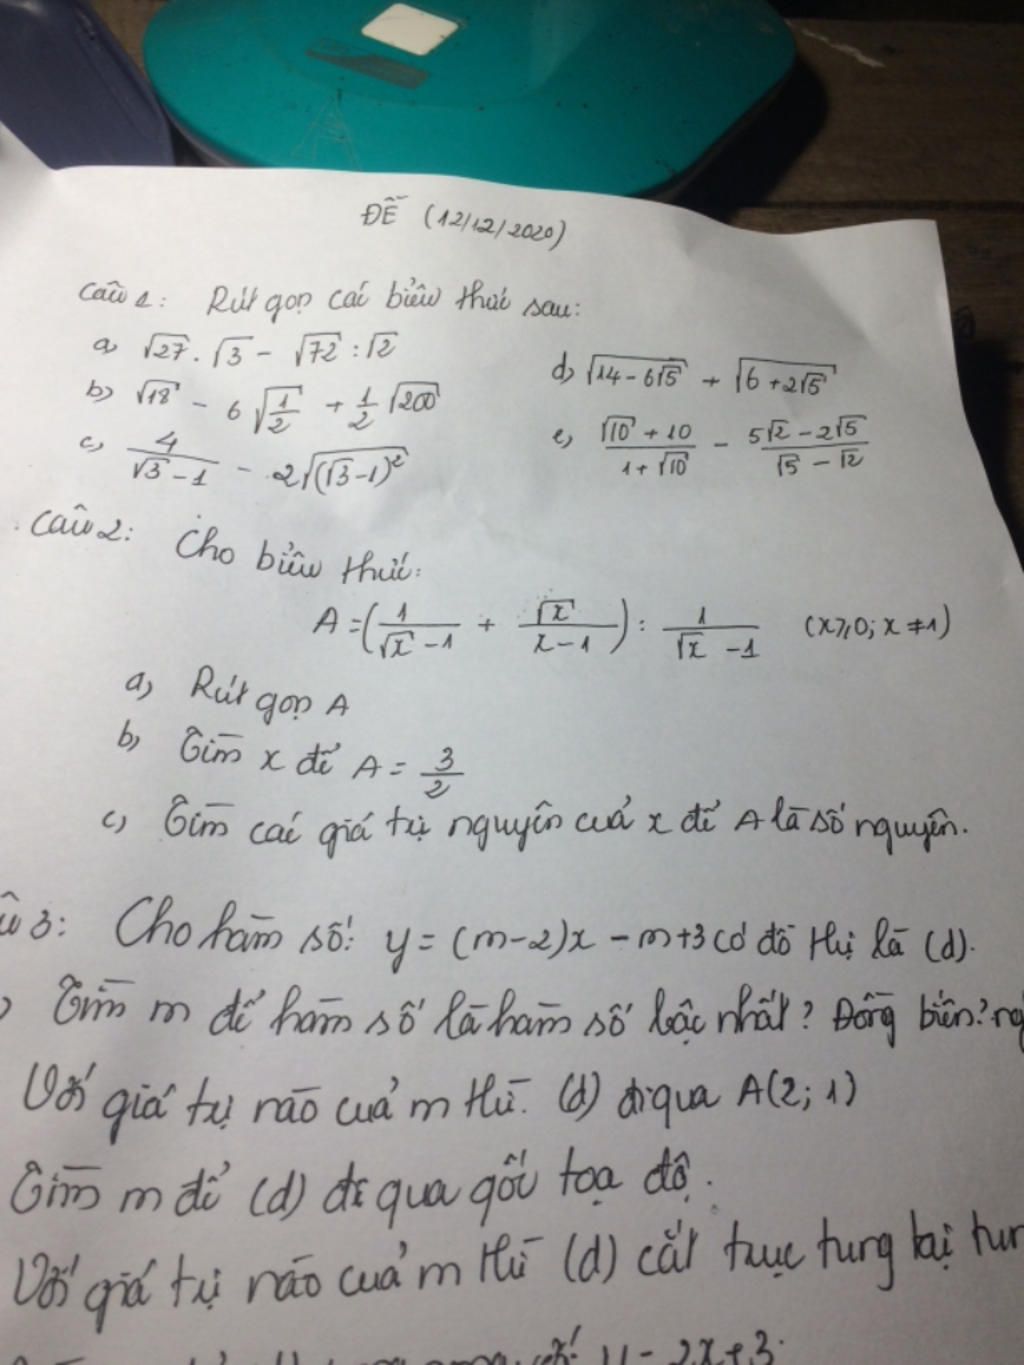 ĐỀ (12/12/2020)
Câu 1: Rút gọn các biểu thức sau:
a) √27 . √3 - √72 : √2
b) √18 - 6√(1/2) + 1/2 √200
c) 4/(√3 - 1) - 2√((√3-1)²)
d) √(14 - 6√5) + √(6 + 2√5)
e) (√10 + 10)/(1 + √10) - (5√2 - 2√5)/(√5 - √2)
Câu 2: Cho biểu thức:
A = (1/(√x - 1) + √x/(x - 1)) : 1/(√x - 1) (x ≥ 0; x ≠ 1)
a) Rút gọn A
b) Tìm x để A = 3/2
c) Tìm các giá trị nguyên của x để A là số nguyên.
3: Cho hàm số: y = (m-2)x - m+3 có đồ thị là (d).
) Tìm m để hàm số là hàm số bậc nhất? Đồng biến?
Với giá trị nào của m thì (d) đi qua A(2; 1)
Tìm m để (d) đi qua gốc toạ độ.
Với giá trị nào của m thì (d) cắt trục tung tại
y = 2x+3